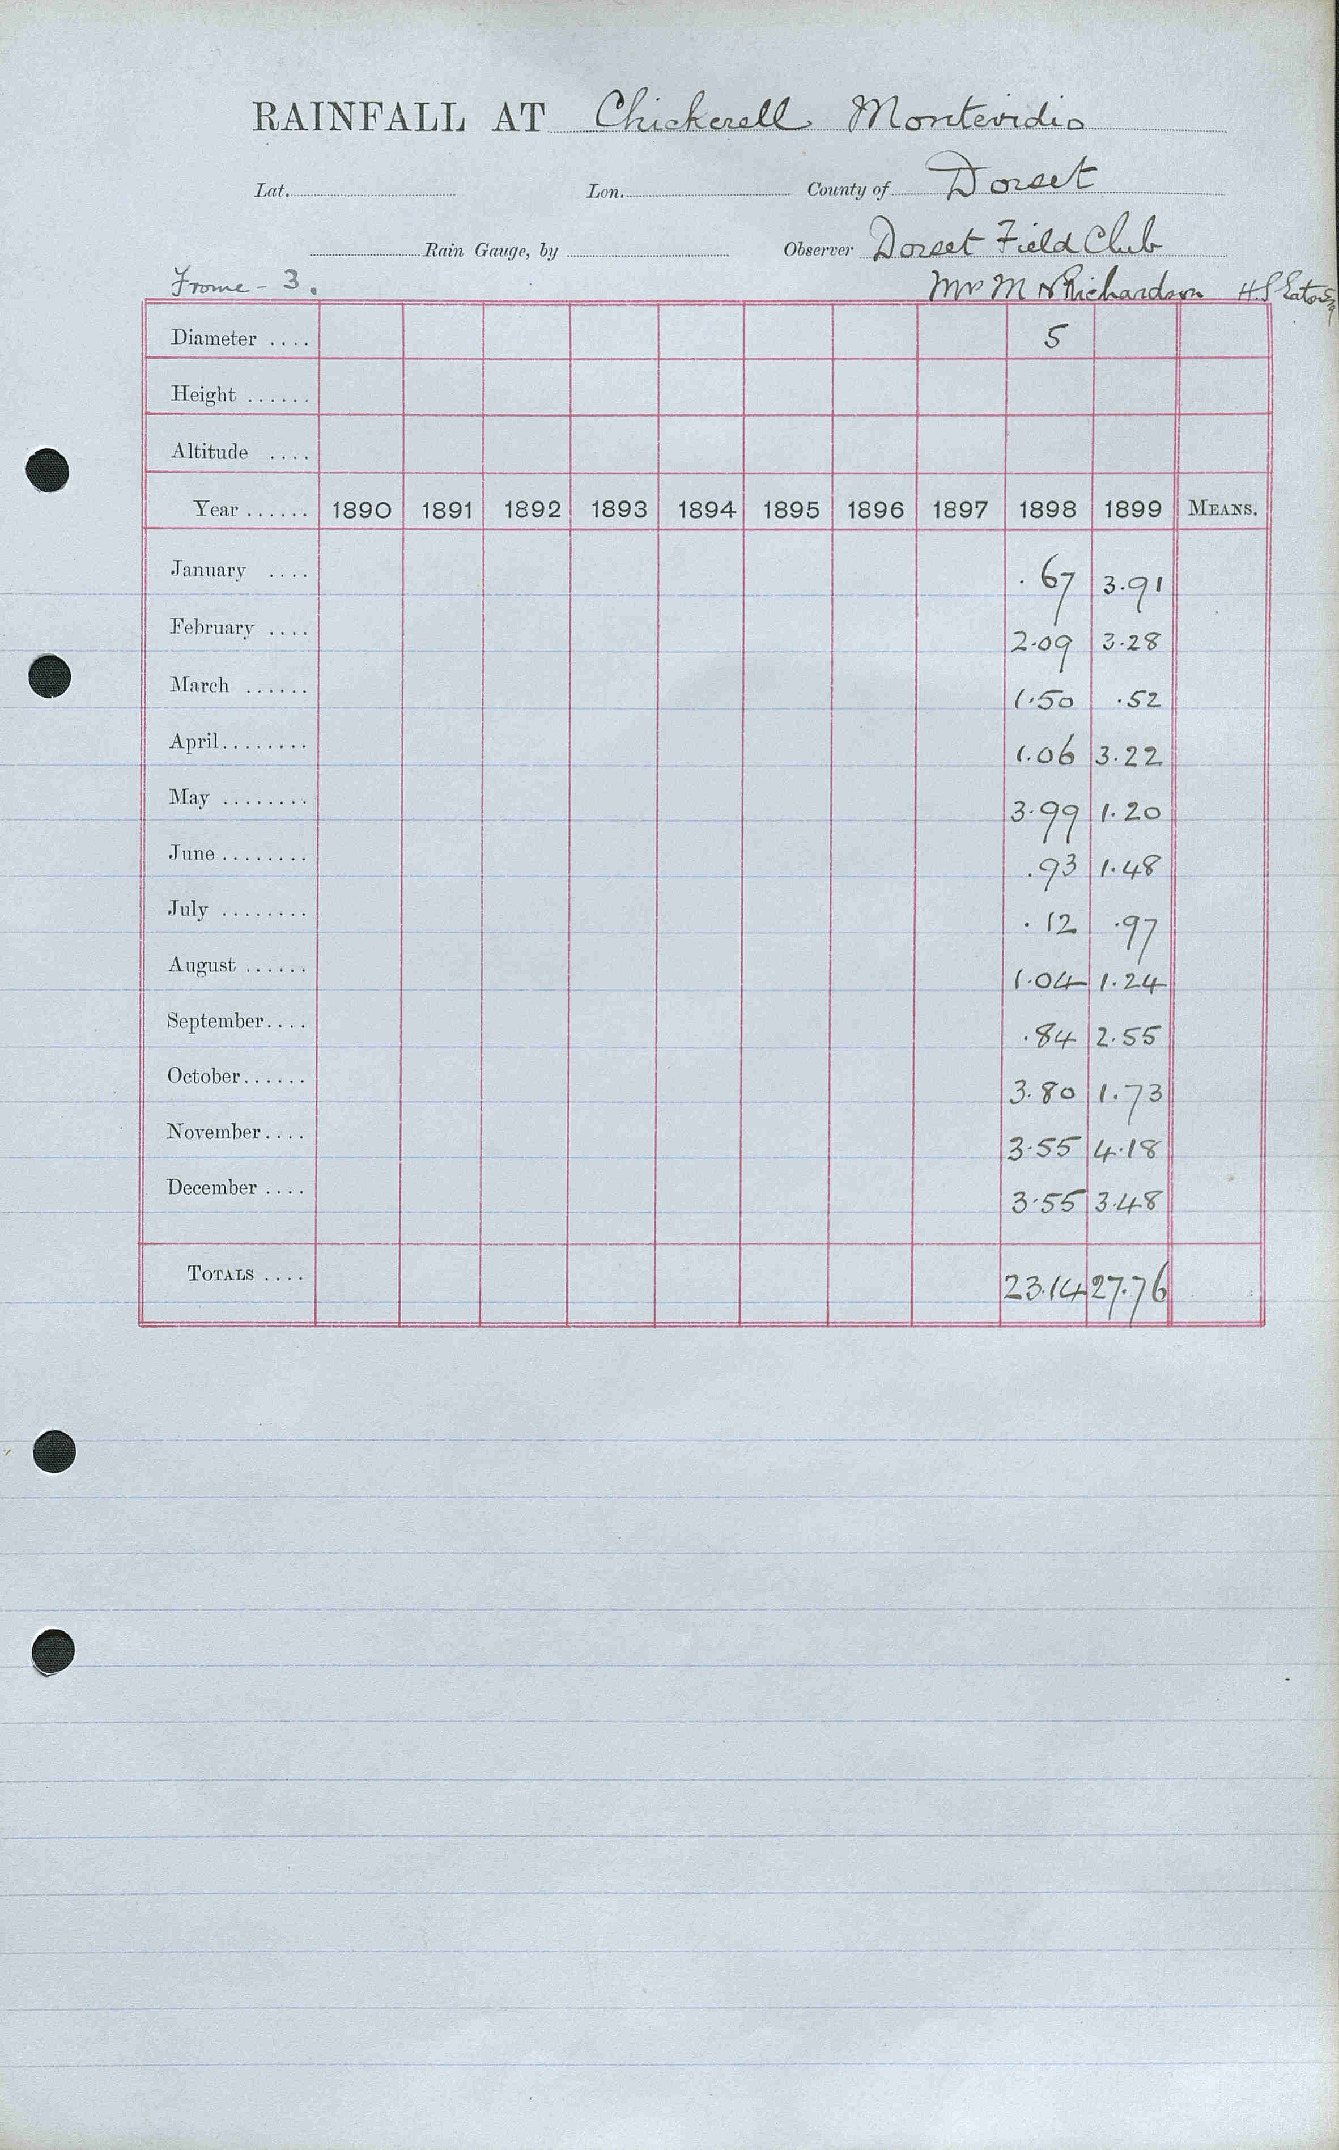 RAINFALL AT Chickerell Montevidio
Lat. Lon. County of Dorset
Rain Gauge, by Observer Dorset Field Club
Frome - 3. Mrs M N Richardson H.S Eaton Esq
Diameter .... 5
Height ......
Altitude ....
Year ...... 1890 1891 1892 1893 1894 1895 1896 1897 1898 1899 MEANS.
January .... .67 3.91
February .... 2.09 3.28
March ...... 1.50 .52
April........ 1.06 3.22
May ........ 3.99 1.20
June ........ .93 1.48
July ........ .12 .97
August ...... 1.04 1.24
September.... .84 2.55
October...... 3.80 1.73
November.... 3.55 4.18
December .... 3.55 3.48
TOTALS .... 23.14 27.76